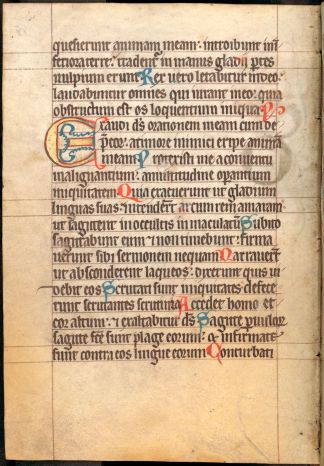 quesierunt animam meam: introibunt inf
feriora terre: tradent in manus gladii ptes
vulpium erunt Rex vero letabitur in deo:
laudabuntur omnes qui iurant in eo: quia
obstructum est os loquentium iniqua
Exaudi ds orationem meam cum de
pcor: a timore inimici eripe animam
meam Protexisti me a conventu
malignantium: a multitudine opantium
iniquitatem Quia exacuerunt ut gladium
linguas suas: intenderunt arcum rem amaram
ut sagittent in occultis inmaculatum Subito
sagittabunt eum & non timebunt: firma
verunt sibi sermonem nequam Narraverunt
ut absconderent laqueos: dixerunt quis vi
debit eos Scrutati sunt iniquitates: defece
runt scrutantes scrutinia Accedet homo et
cor altum: & exaltabitur ds Sagitte pvulor
sagitte fce sunt plage eorum: & infirmate
sunt contra eos lingue eorum Conturbati